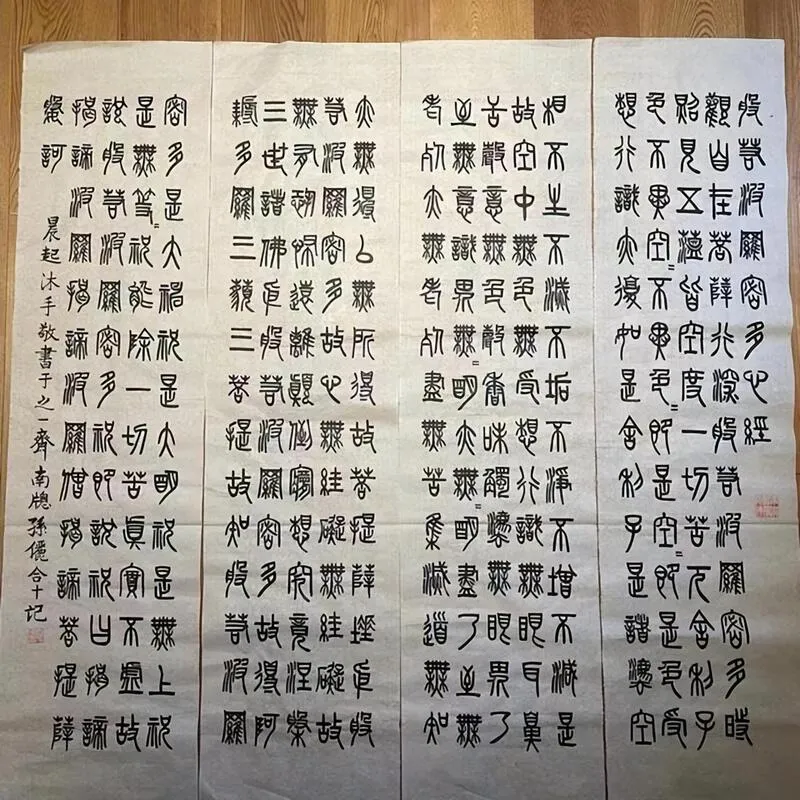 般若波羅密多心經
觀自在菩薩行深般若波羅密多時
照見五蘊皆空度一切苦厄舍利子
色不異空=不異色=即是空=即是色受
想行識亦復如是舍利子是諸灋空
相不生不滅不垢不淨不增不減是
故空中無色無受想行識無眼耳鼻
舌聲意無色聲香味觸灋無眼界了
至無意識界無=明亦無=明盡了至無
老死亦無老死盡無苦集滅道無知
亦無得以無所得故菩提薩埵依般
若波羅密多故心無罣礙無罣礙故
無有恐怖遠離顛倒夢想究竟涅槃
三世諸佛依般若波羅密多故得阿
耨多羅三藐三菩提故知般若波羅
密多是大神祝是大明祝是無上祝
是無等=祝能除一切苦真實不虛故
說般若波羅密多祝即說祝曰揭諦
揭諦波羅揭諦波羅僧揭諦菩提薩
婆訶
晨起沐手敬書于之一齋南牕孫儷合十记